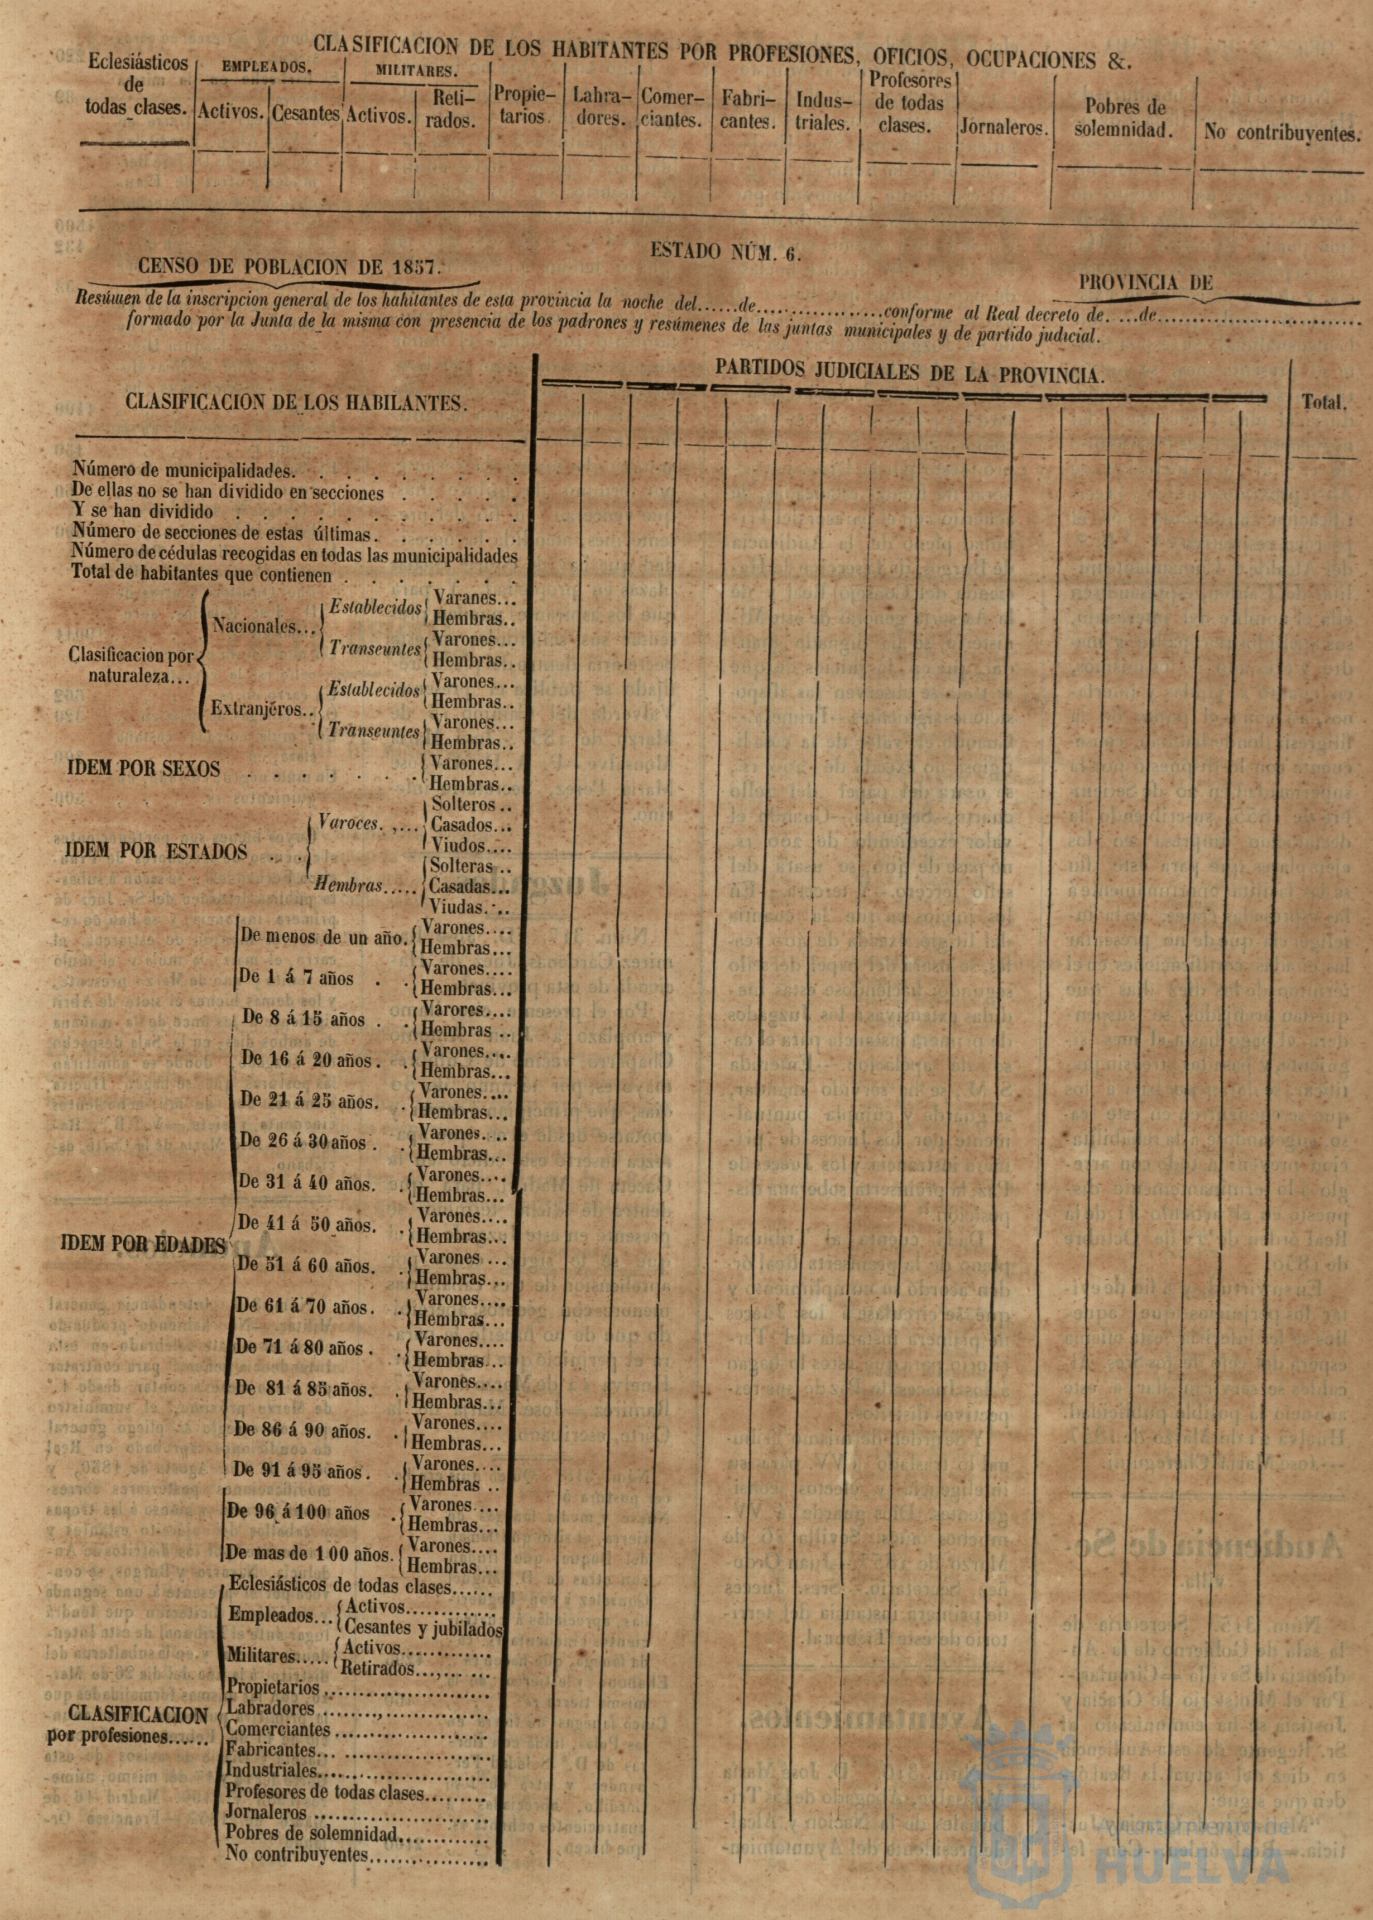 CLASIFICACION DE LOS HABITANTES POR PROFESIONES, OFICIOS, OCUPACIONES &.
Eclesiásticos de todas clases.
EMPLEADOS.
Activos.
Cesantes
MILITARES.
Activos.
Reti-
rados.
Propie-
tarios.
Labra-
dores.
Comer-
ciantes.
Fabri-
cantes.
Indus-
triales.
Profesores
de todas
clases.
Jornaleros.
Pobres de
solemnidad.
No contribuyentes.
ESTADO NÚM. 6.
CENSO DE POBLACION DE 1857.
PROVINCIA DE
Resúmen de la inscripcion general de los habitantes de esta provincia la noche del......de..................conforme al Real decreto de....de..............................
formado por la Junta de la misma con presencia de los padrones y resúmenes de las juntas municipales y de partido judicial.
CLASIFICACION DE LOS HABILANTES.
PARTIDOS JUDICIALES DE LA PROVINCIA.
Total.
Número de municipalidades. . . . . . . . .
De ellas no se han dividido en secciones . . . . .
Y se han dividido . . . . . . . . . . .
Número de secciones de estas últimas. . . . . .
Número de cédulas recogidas en todas las municipalidades
Total de habitantes que contienen . . . . . . .
Clasificacion por
naturaleza...
Nacionales...
Establecidos
Varanes...
Hembras..
Transeuntes
Varones...
Hembras..
Extranjéros..
Establecidos
Varones...
Hembras..
Transeuntes
Varones...
Hembras..
IDEM POR SEXOS . . . . . . .
Varones...
Hembras..
IDEM POR ESTADOS . .
Varoces. ,...
Solteros ..
Casados...
Viudos....
Hembras.....
Solteras ..
Casadas...
Viudas. ..
IDEM POR EDADES
De menos de un año.
Varones....
Hembras...
De 1 á 7 años .
Varones....
Hembras...
De 8 á 15 años .
Varores....
Hembras ..
De 16 á 20 años.
Varones....
Hembras...
De 21 á 25 años.
Varones....
Hembras...
De 26 á 30 años .
Varones....
Hembras...
De 31 á 40 años.
Varones....
Hembras...
De 41 á 50 años.
Varones....
Hembras...
De 51 á 60 años.
Varones ...
Hembras...
De 61 á 70 años.
Varones....
Hembras...
De 71 á 80 años .
Varones....
Hembras...
De 81 á 85 años.
Varones....
Hembras...
De 86 á 90 años.
Varones....
Hembras...
De 91 á 95 años .
Varones....
Hembras ..
De 96 á 100 años
Varones ...
Hembras...
De mas de 100 años.
Varones....
Hembras...
CLASIFICACION
por profesiones......
Eclesiásticos de todas clases......
Empleados...
Activos.............
Cesantes y jubilados
Militares.....
Activos.............
Retirados...,... ...
Propietarios ........................
Labradores ........,...............
Comerciantes ......................
Fabricantes... .....................
Industriales.........................
Profesores de todas clases.........
Jornaleros .........................
Pobres de solemnidad.............
No contribuyentes.................
AYUNTAMIENTO DE
HUELVA